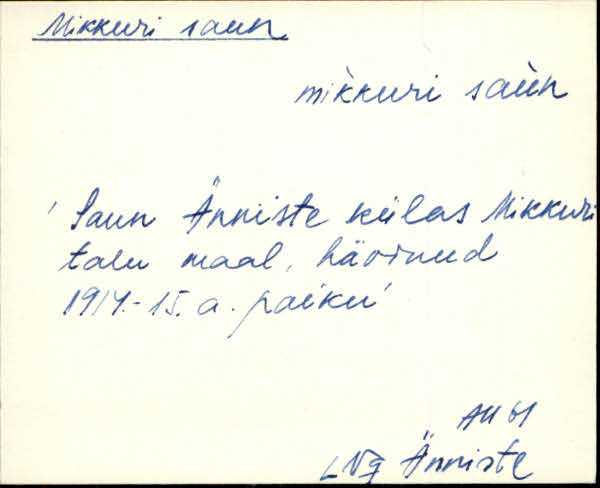 Mikkuri saun
mi`kkuri saùn
'Saun Änniste külas Mikkuri
talu maal, hävinud
1914.-15. a. paiku'
Änniste